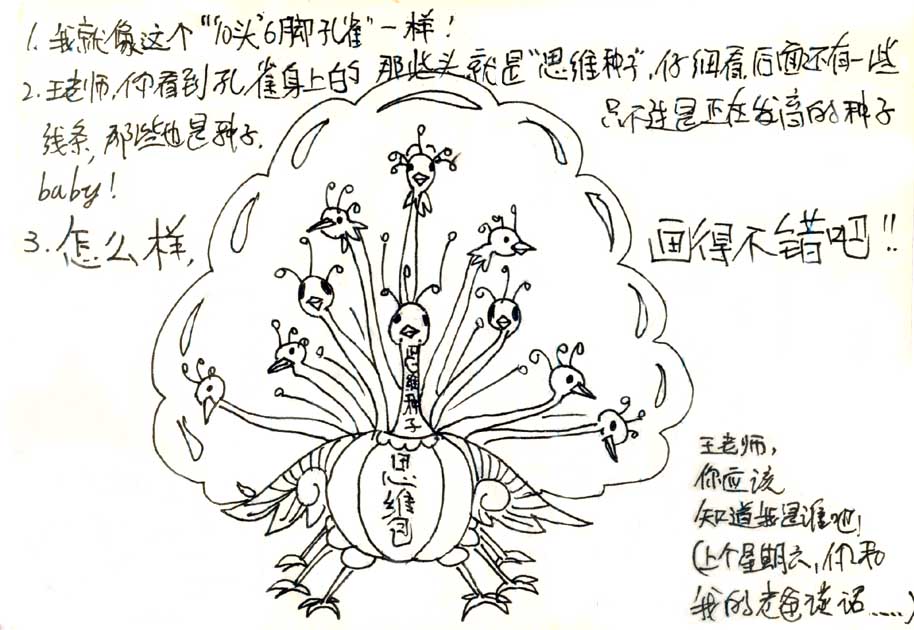 1. 我就像这个“"10头"6脚孔雀”一样！
2. 王老师,你看到孔雀身上的 那些头就是“思维种子”,仔细看,后面还有一些
线条,那些也是种子, 只不过是正在发育的种子
baby!
3. 怎么样, 画得不错吧!!
思维种子
思维包
王老师,
你应该
知道我是谁吧!
(上个星期六,你和
我的老爸谈话……)